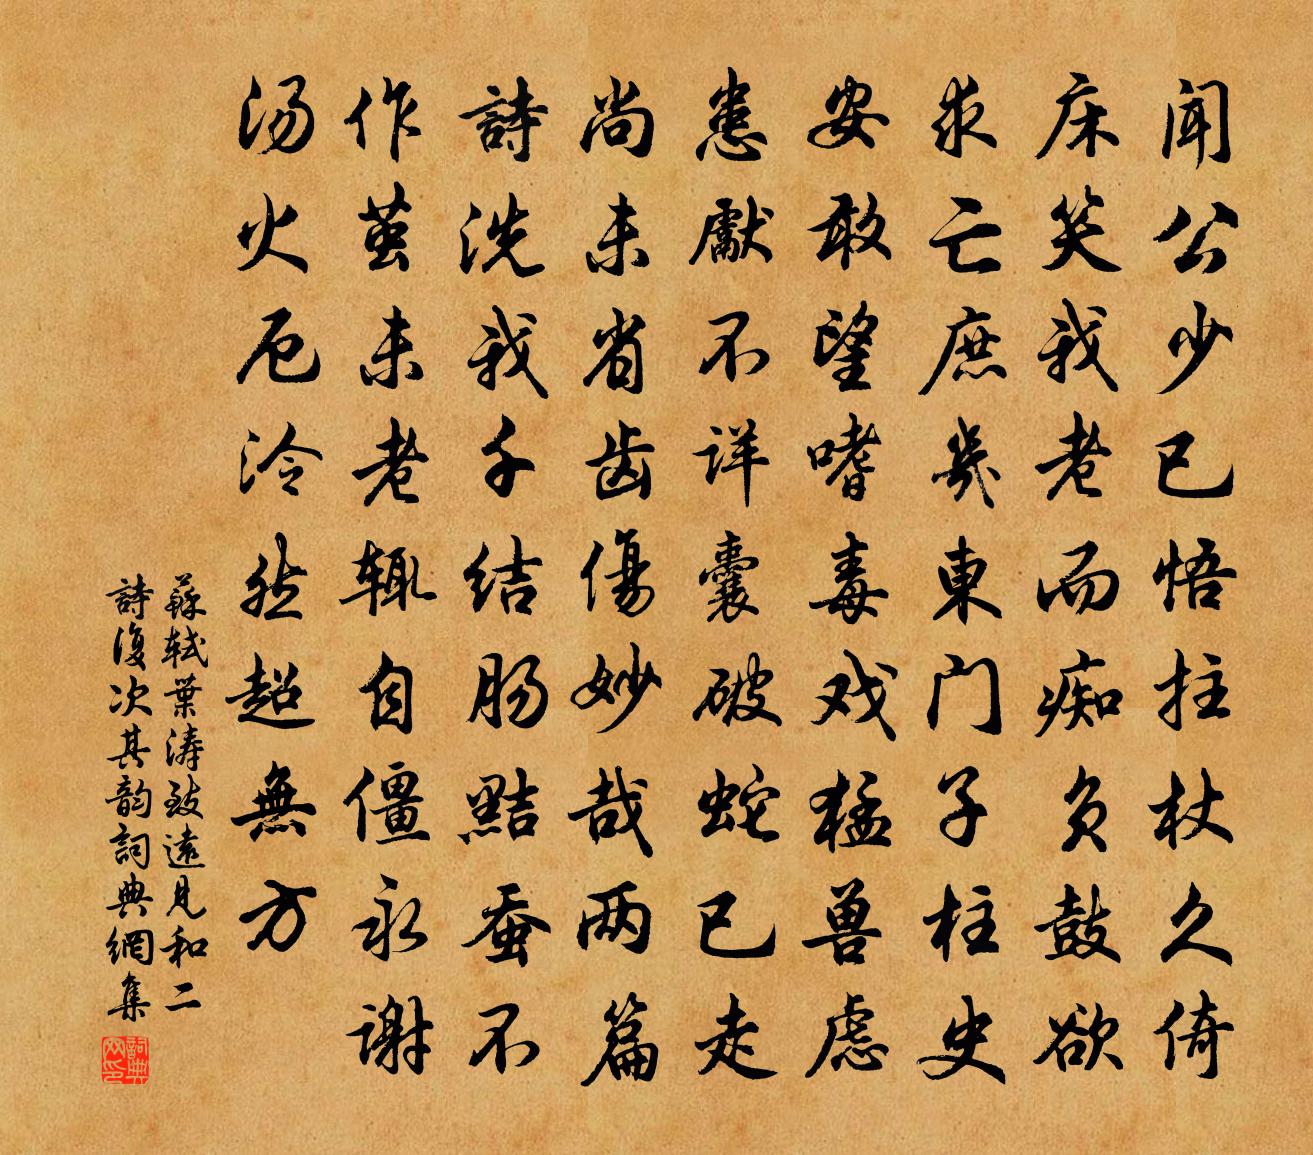 闻公少已悟拄杖久倚
床笑我老而痴负鼓欲
求亡庶幾東门子柱史
安敢望嗜毒戏猛兽虑
患獻不详囊破蛇已走
尚未省齿傷妙哉两篇
詩洗我千结肠黠蚕不
作茧未老辄自僵永谢
汤火厄泠然超無方
蘇轼葉涛致遠見和二
詩復次其韵詞典網集
詞典网印